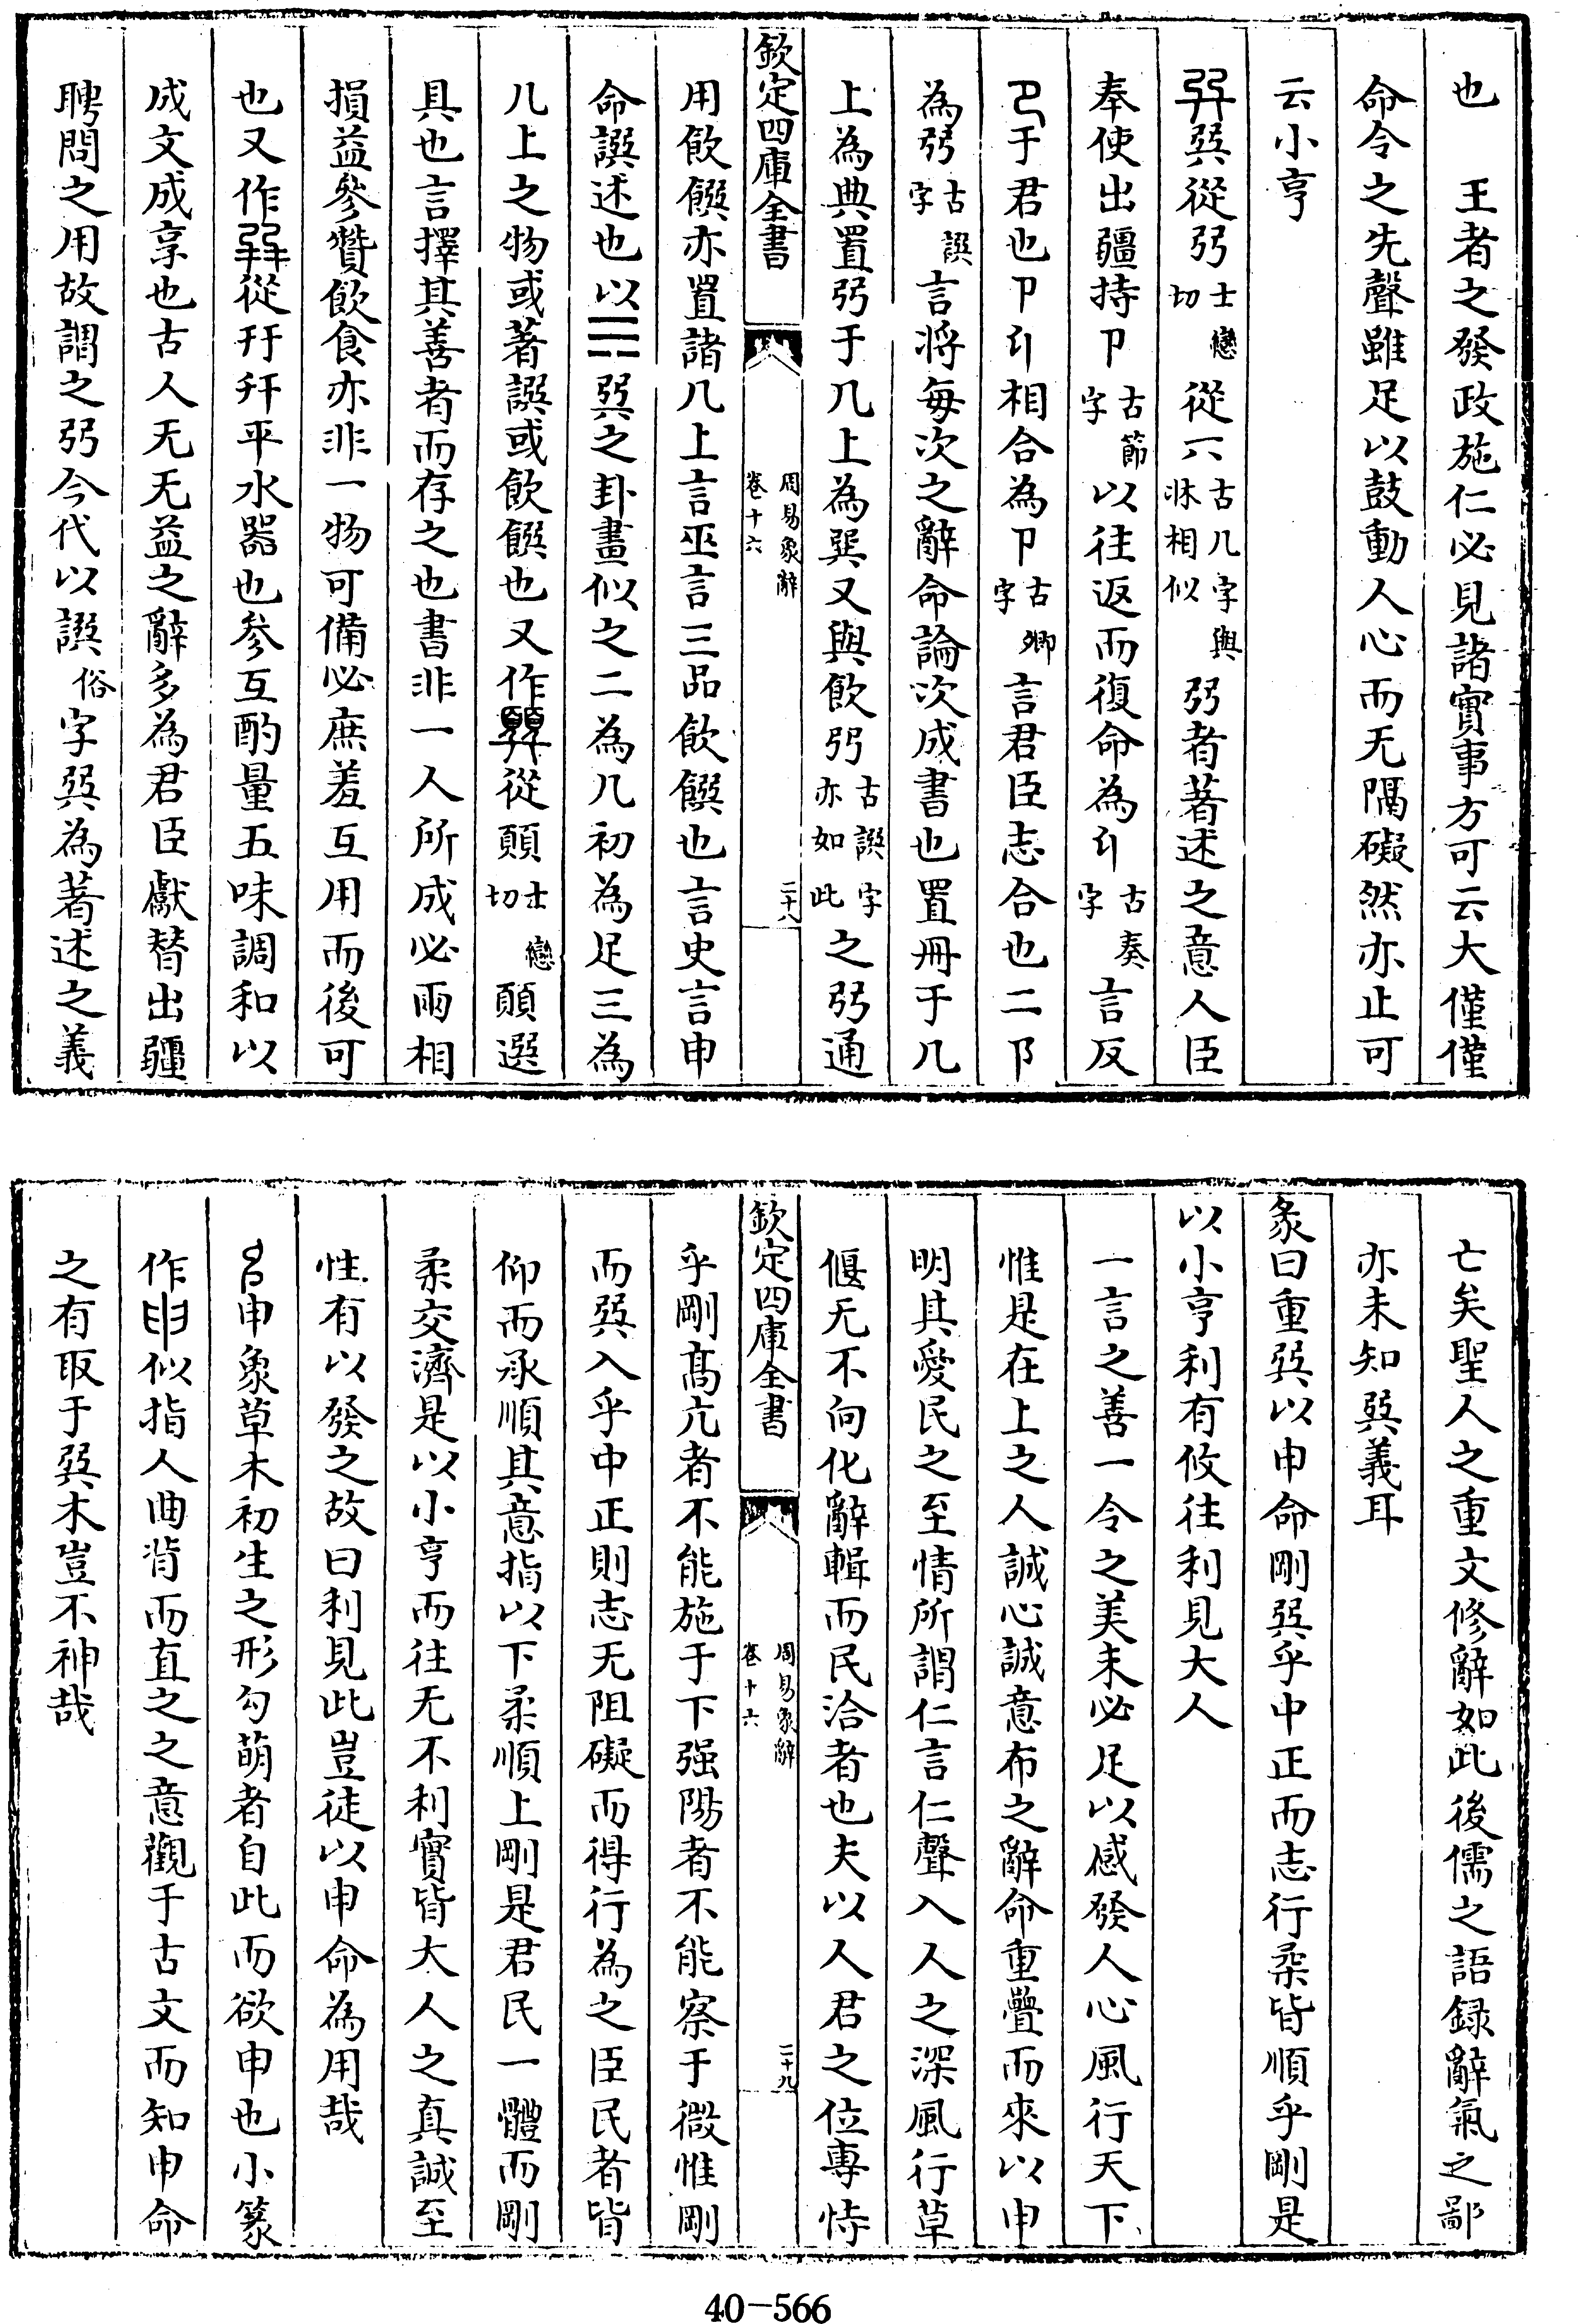 也　王者之發政施仁必見諸實事方可云大僅僅
命令之先聲雖足以鼓動人心而无隔礙然亦止可
云小亨
巽從弜士戀切從丌古几字與牀相似弜者著述之意人臣
奉使出疆持卩古節字以往返而復命為㔿古奏字言反
于君也卩㔿相合為卪古卿字言君臣志合也二卩
為弜古譔字言將每次之辭命論次成書也置冊于几
上為典置弜于几上為巽又與飲弜古譔字亦如此之弜通
欽定四庫全書　周易象辭　卷十六　二十八
用飲饌亦置諸几上言巫言三品飲饌也言史言申
命譔述也以☴巽之卦畫似之二為几初為足三為
几上之物或著譔或飲饌也又作顨從頭士戀切頭選
具也言擇其善者而存之也書非一人所成必兩相
損益參贊飲食亦非一物可備必庶羞互用而後可
也又作從幵幵平水器也參互酌量五味調和以
成文成享也古人无无益之辭多為君臣獻替出疆
聘問之用故謂之弜今代以譔俗字巽為著述之義
亡矣聖人之重文修辭如此後儒之語録辭氣之鄙
亦未知巽義耳
彖曰重巽以申命剛巽乎中正而志行柔皆順乎剛是
以小亨利有攸往利見大人
一言之善一令之美未必足以感發人心風行天下
惟是在上之人誠心誠意布之辭命重疊而來以申
明其愛民之至情所謂仁言仁聲入人之深風行草
偃无不向化辭輯而民洽者也夫以人君之位專恃
欽定四庫全書　周易象辭　卷十六　二十九
乎剛髙亢者不能施于下强陽者不能察于微惟剛
而巽入乎中正則志无阻礙而得行為之臣民者皆
仰而承順其意指以下柔順上剛是君民一體而剛
柔交濟是以小亨而往无不利實皆大人之真誠至
性有以發之故曰利見此豈徒以申命為用哉
申象草木初生之形勾萌者自此而欲申也小篆
作似指人曲背而直之之意觀于古文而知申命
之有取于巽木豈不神哉
40-566